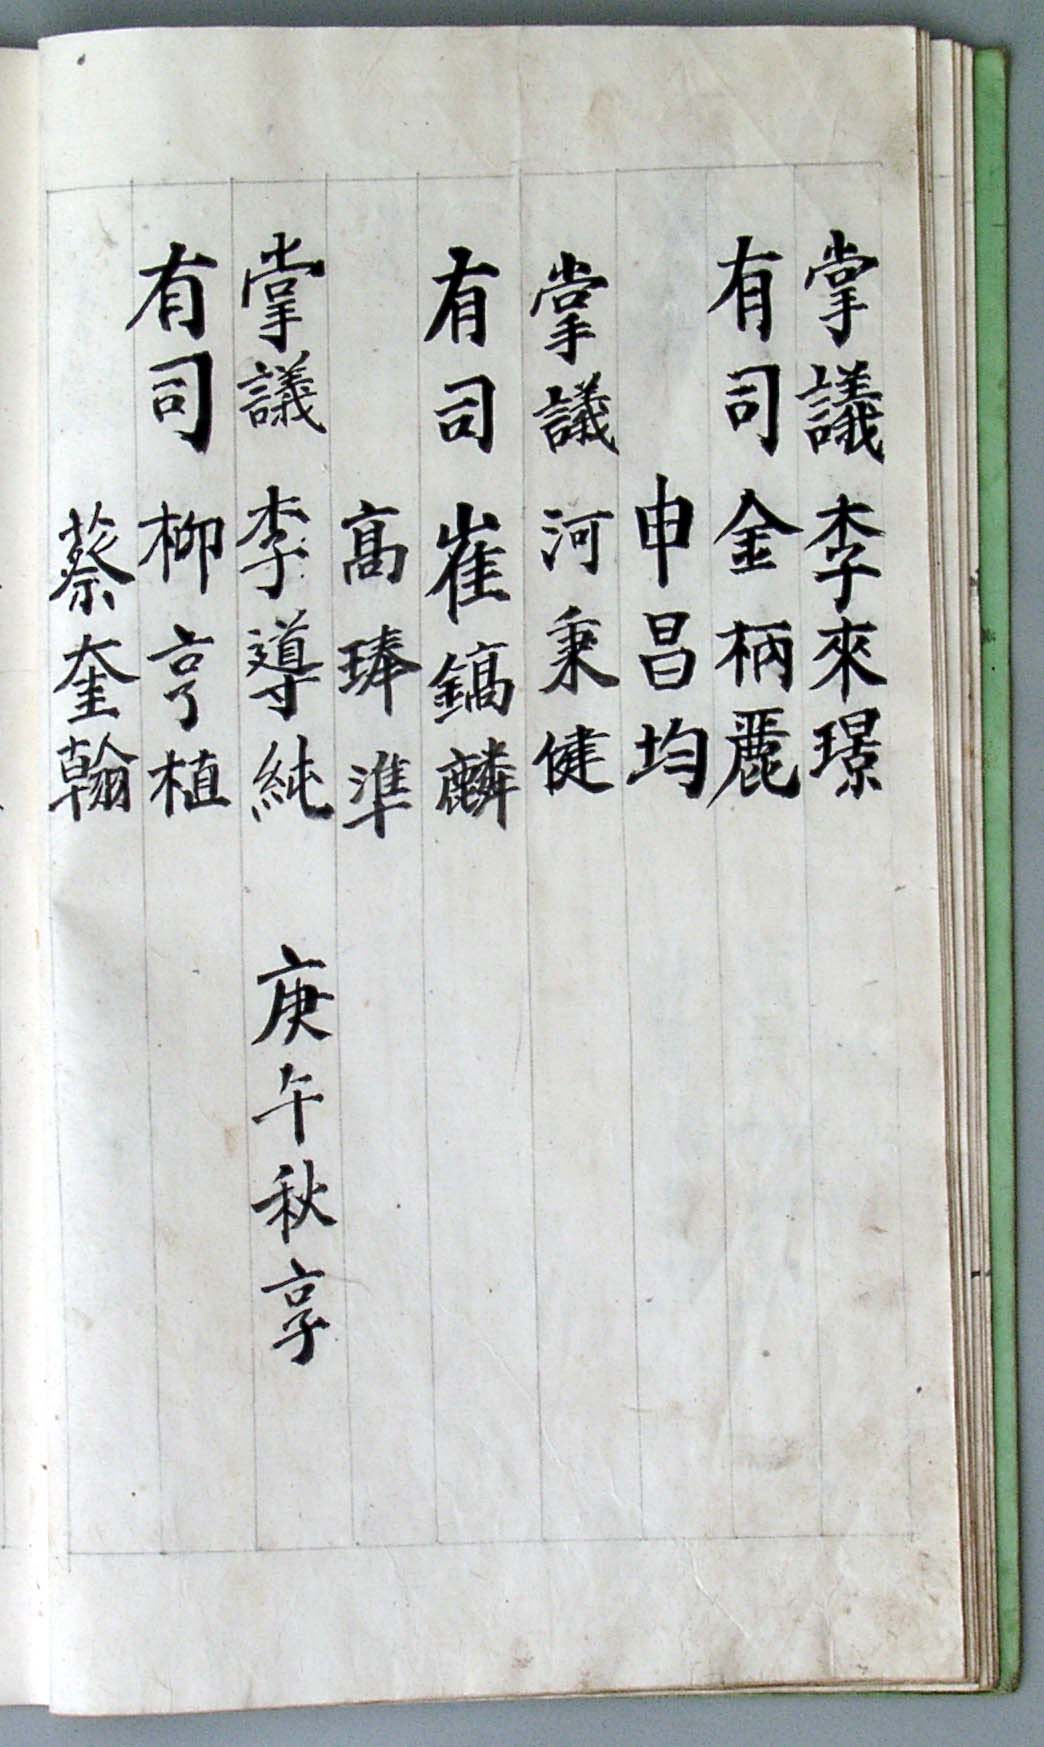 掌議 李來璟
有司 金柄麗
申昌均
掌議 河秉健
有司 崔鎬麟
高琫準
掌議 李導純 庚午秋享
有司 柳亨植
蔡奎翰